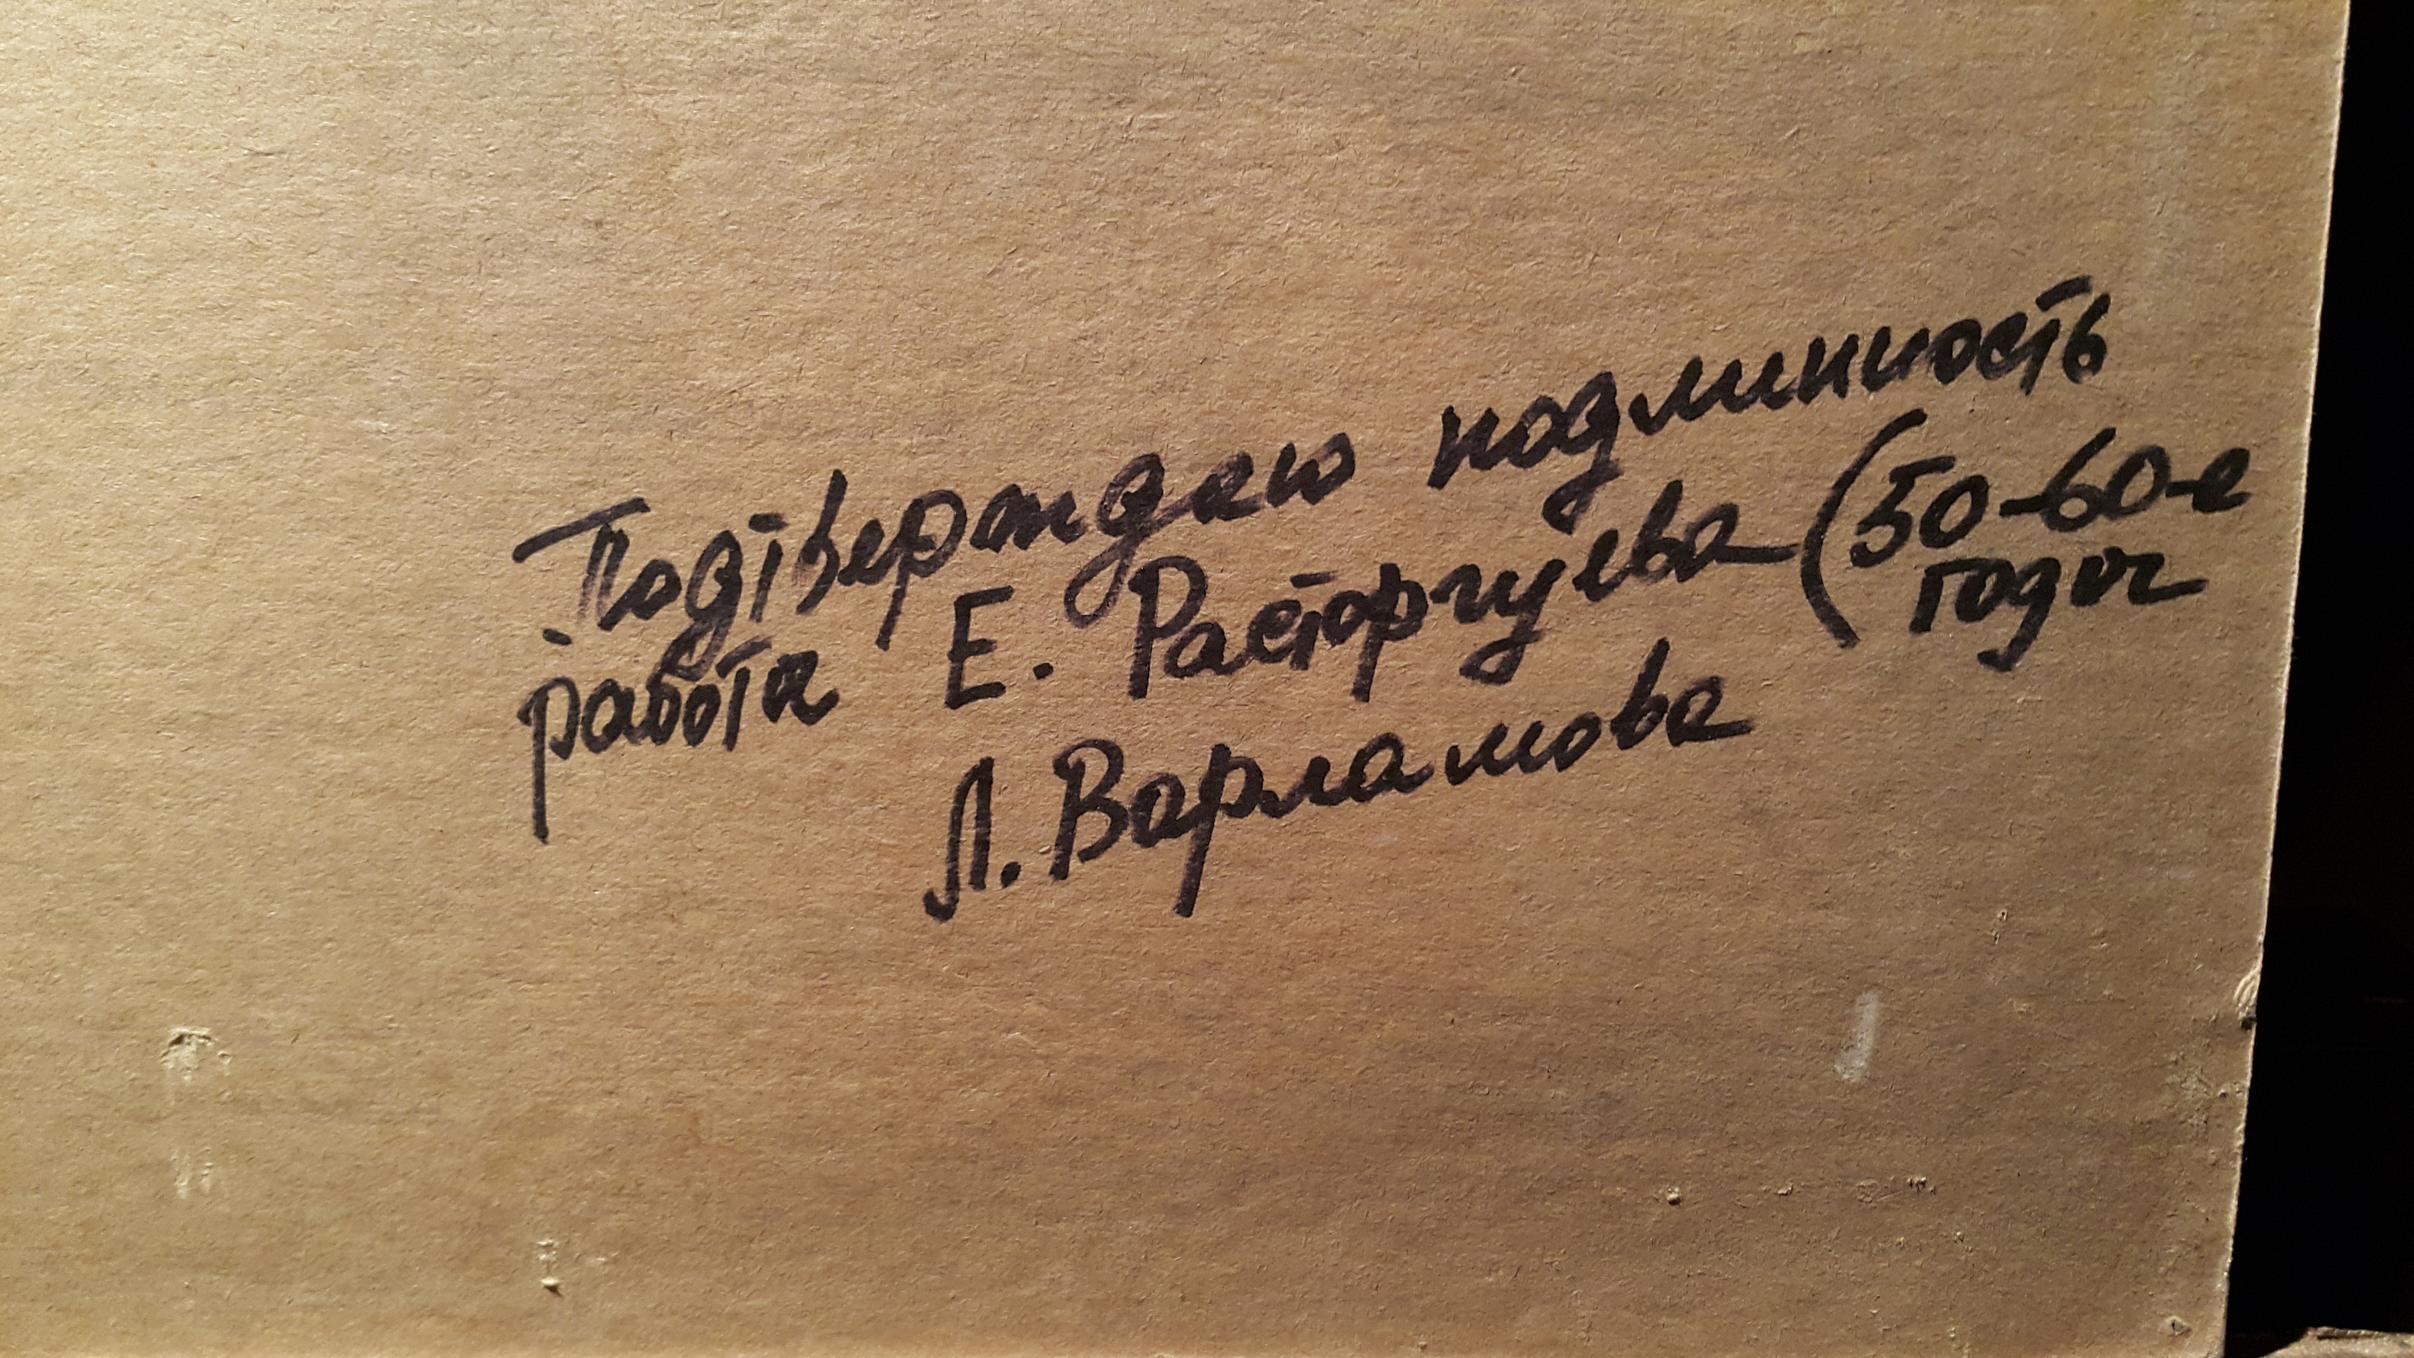 Подтверждаю подлинность
работа Е. Расторгуева (50-60-е
года
Л. Варламова